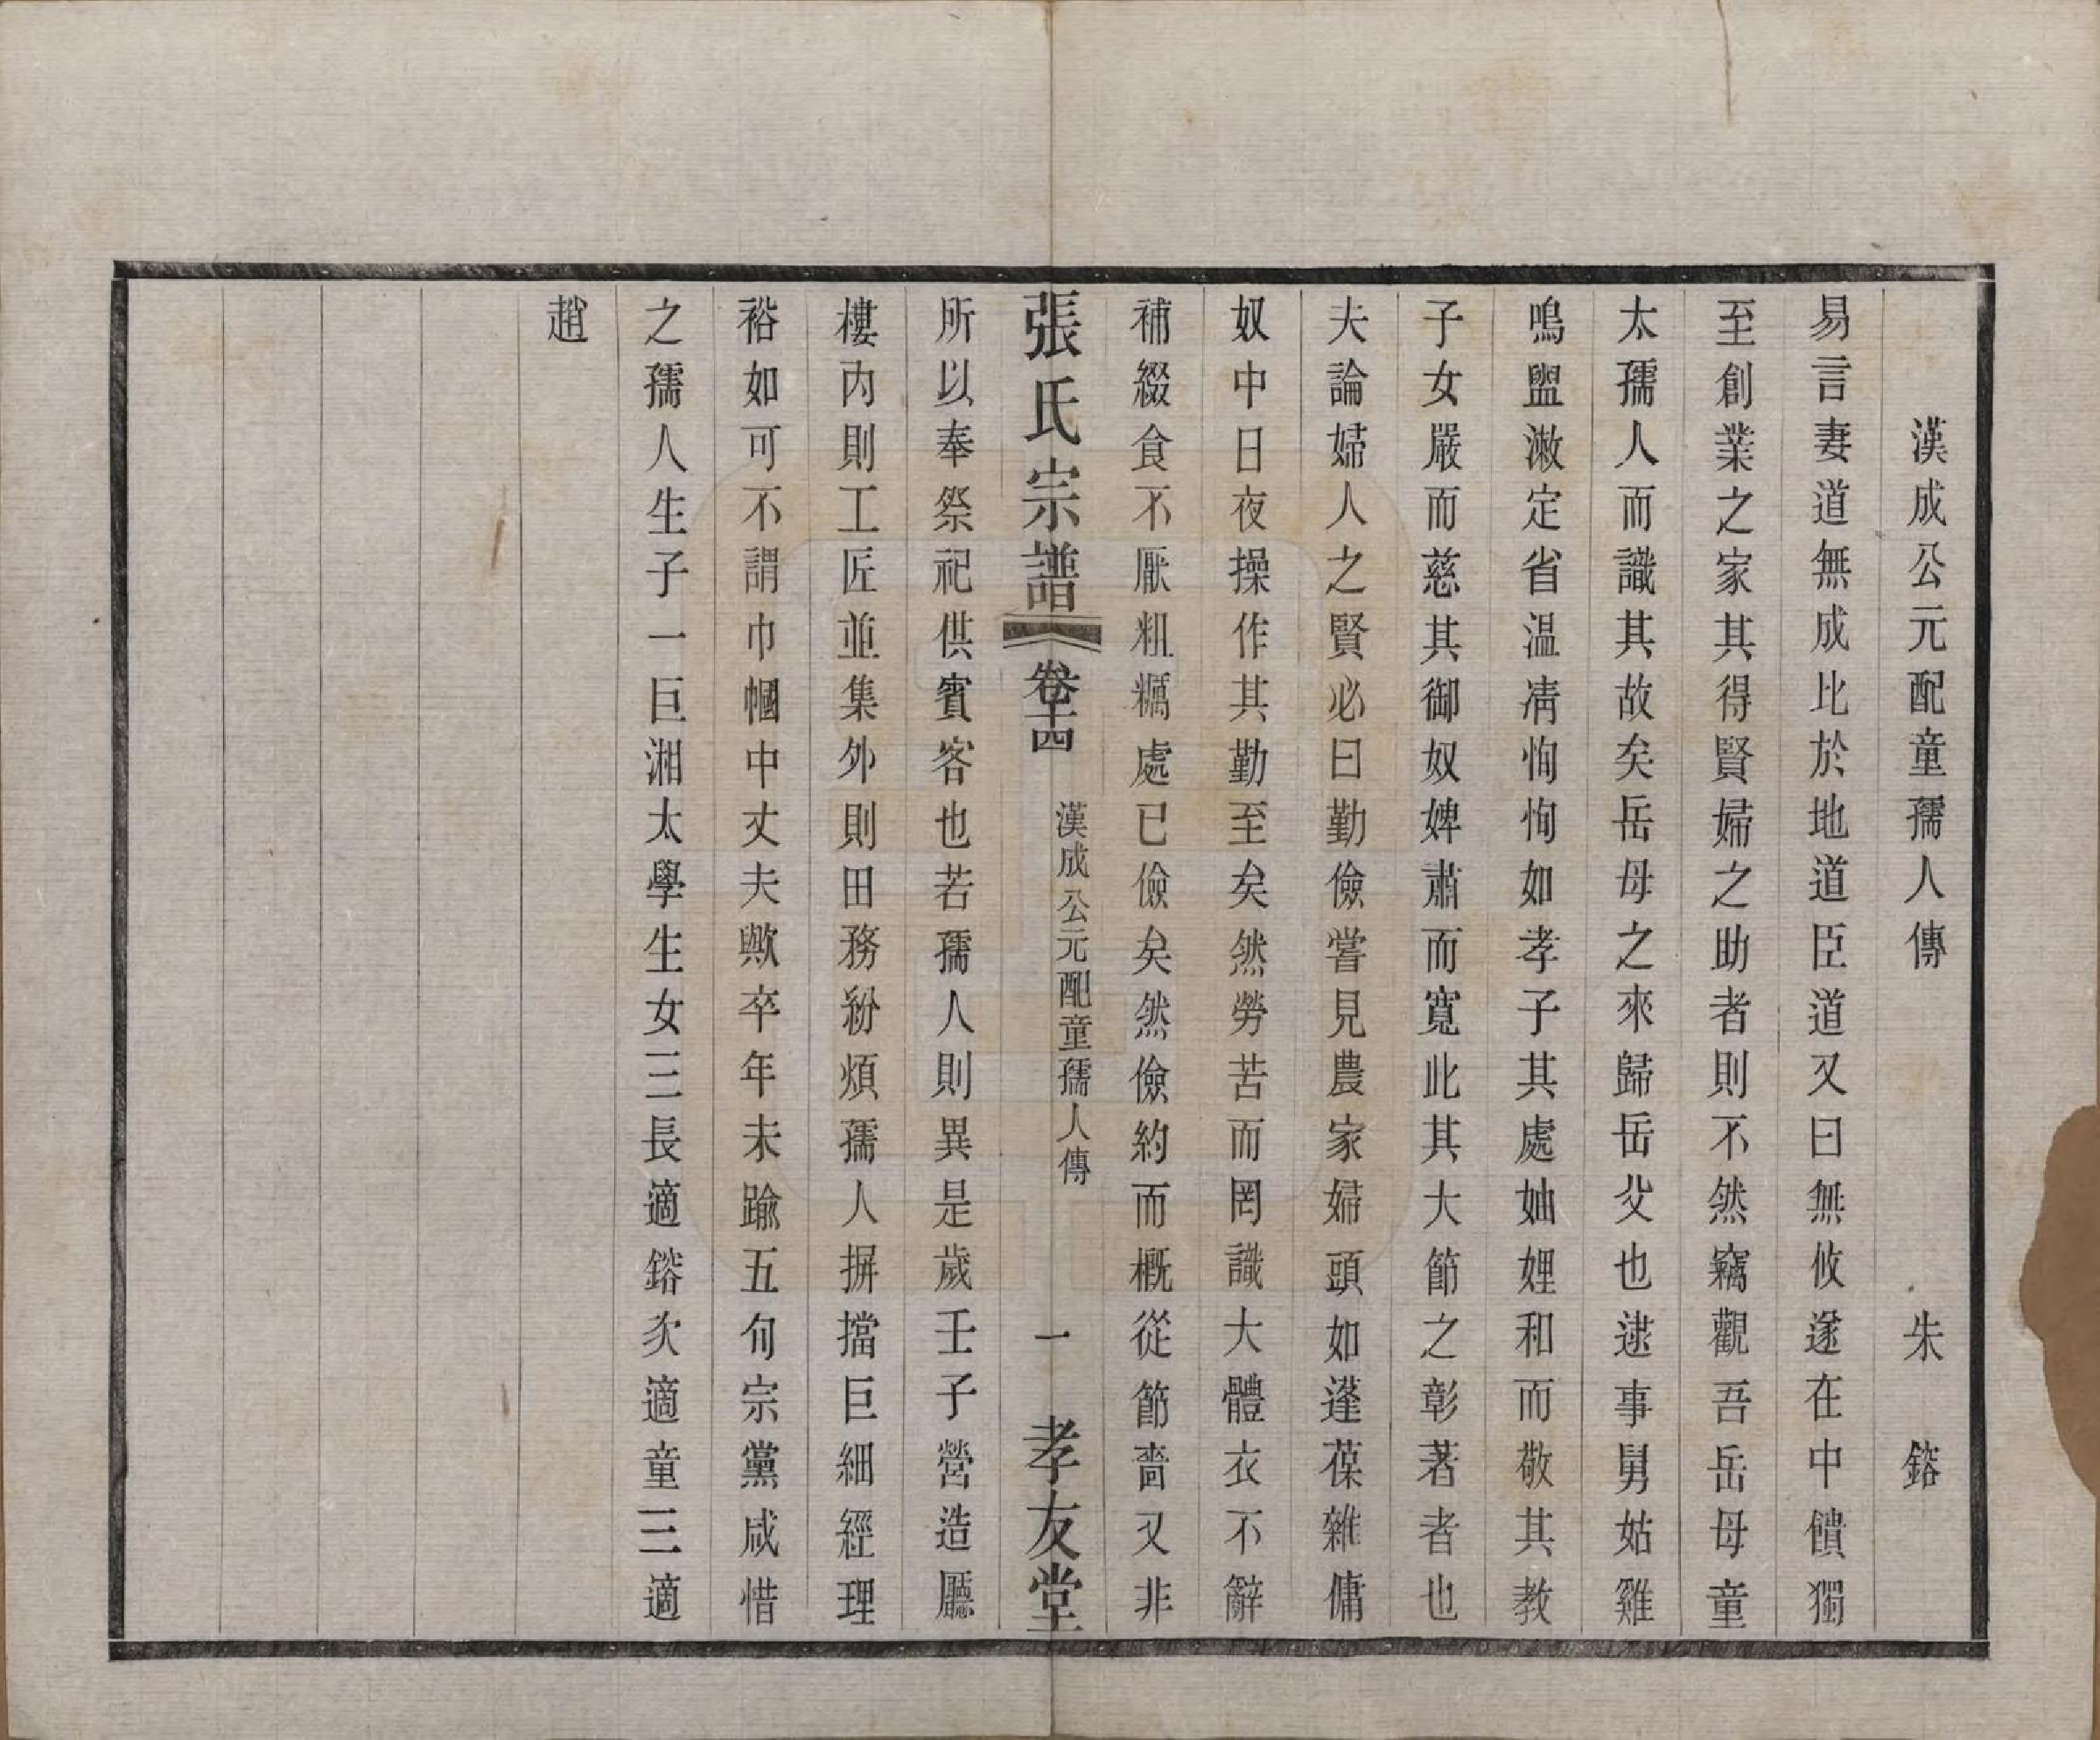 漢成公元配童孺人傳 朱鎔
易言妻道無成比於地道臣道又曰無攸遂在中饋獨
至創業之家其得賢婦之助者則不然竊觀吾岳母童
太孺人而識其故矣岳母之來歸岳父也逮事舅姑雞
鳴盥漱定省溫凊恂恂如孝子其處妯娌和而敬其教
子女嚴而慈其御奴婢肅而寬此其大節之彰著者也
夫論婦人之賢必曰勤儉嘗見農家婦頭如蓬葆雜傭
奴中日夜操作其勤至矣然勞苦而罔識大體衣不辭
補綴食不厭粗糲處已儉矣然儉約而概從節嗇又非
張氏宗譜 卷十四 漢成公元配童孺人傳 一 孝友堂
所以奉祭祀供賓客也若孺人則異是歲壬子營造廳
樓內則工匠並集外則田務紛煩孺人摒擋巨細經理
裕如可不謂巾幗中丈夫歟卒年未踰五旬宗黨咸惜
之孺人生子一巨湘太學生女三長適鎔次適童三適
趙